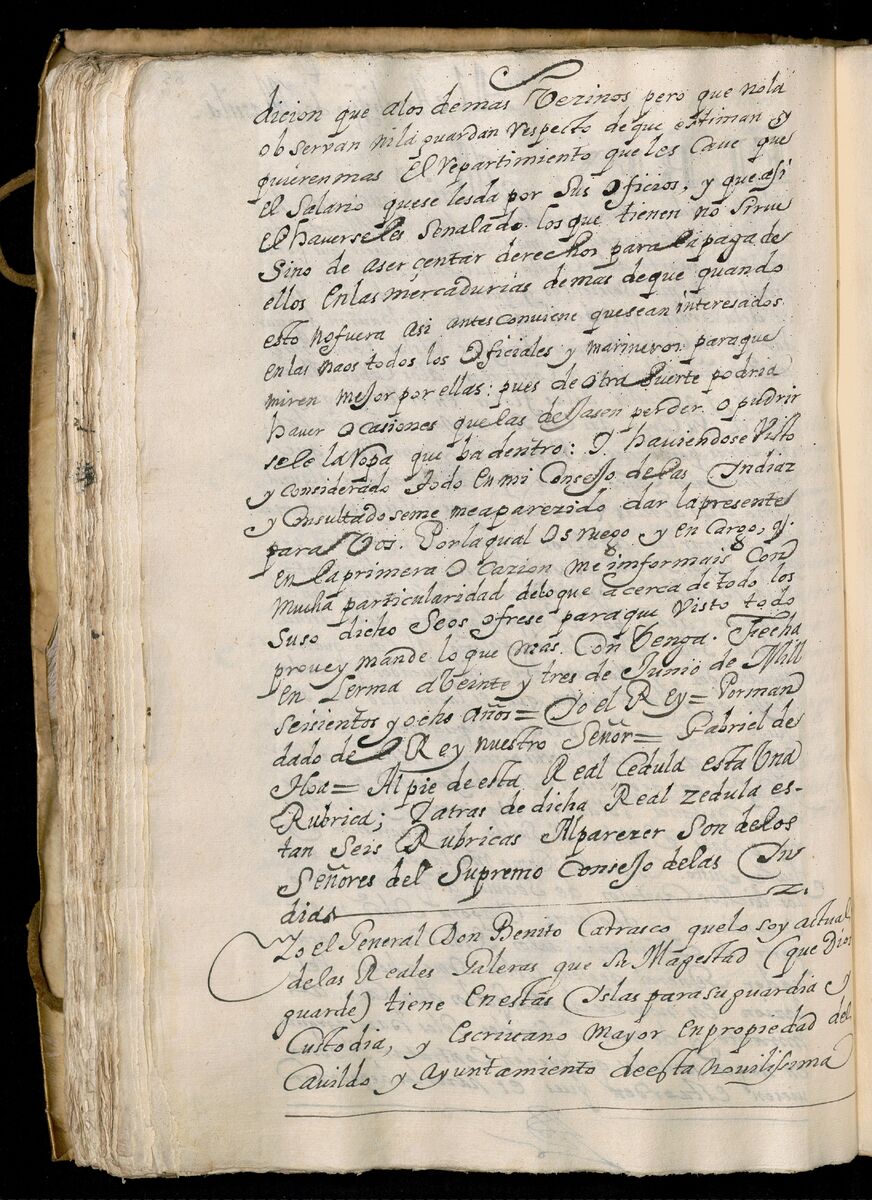 dicion que alos demas Vezinos pero que nola
observan nila guardan respecto de que estiman y
quieren mas El repartimiento queles Cave que
El Salario quese lesda por sus oficios, y que asi
El haverseles senalado los que tienen no sirve
Sino de asercentar derechos para la paga de
ellos En las mercadurias demas deque quando
esto no fuera asi antes conviene que sean interesados
en las naos todos los Oficiales y marineros paraque
miren mejor por ellas: pues de otra suerte podria
haver ocasiones que las dejasen perder o pudrir
sele la ropa que ba dentro: Y haviendose Visto
y considerado todo En mi Consejo de las Yndias
y Consultadoseme me aparezido dar la presente
para Vos. Por la qual Os ruego y en Cargo, q.
en la primera Ocazion me imformais Con
mucha particularidad delo que acerca de todo los
suso dicho Seos ofrese para que Visto todo
provey mande lo que mas Con Venga. Fecha
en Lerma a Veinte y tres de Junio de Mill
seisientos y ocho años = Yo el Rey = Porman
dado de el Rey nuestro Señor = Gabriel de
Hoa = Al pie de esta Real Cedula esta Una
Rubrica; Yatras de dicha Real zedula es-
tan Seis Rubricas Al parezer Son delos
Señores del Supremo Consejo delas Yn
dias
Yo el General Don Benito Carrasco quelo soy actual
delas Reales Galeras que su Magestad (que Dios
guarde) tiene En estas Yslas para su guardia y
Custodia, y Escrivano Mayor En propiedad del
Cavildo y Ayuntamiento de esta Novilissima